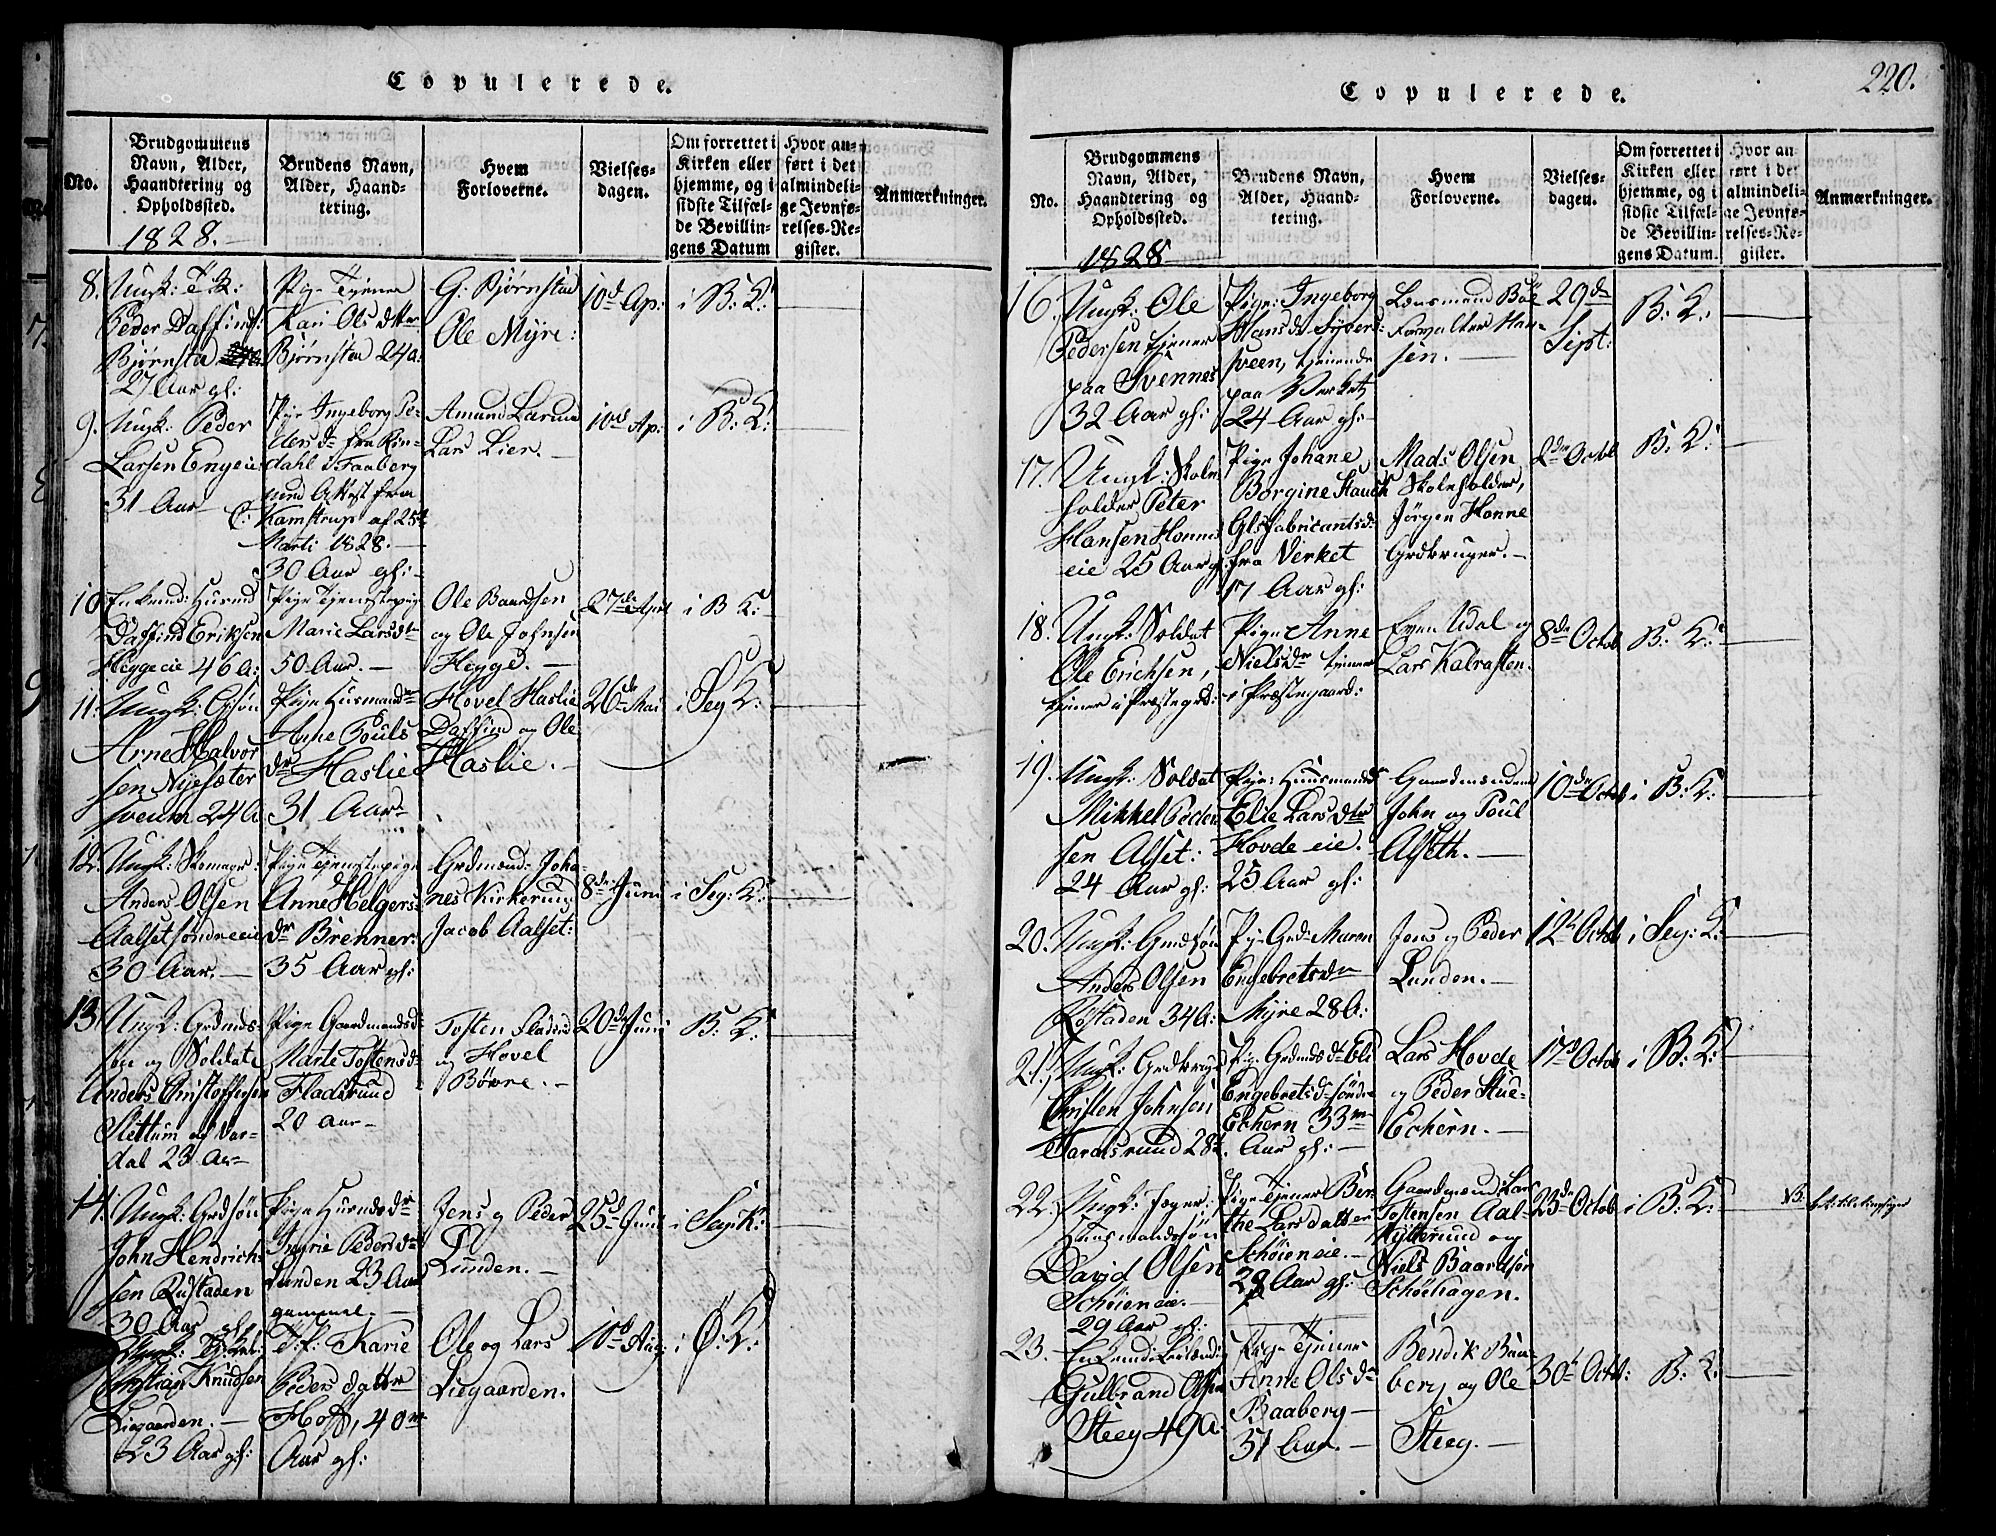 Copulerede.
No.
Brudgommens
Navn, Alder,
Haandtering og
Opholdssted.
1828.
Brudens Navn,
Alder, Haand-
tering.
Hvem
Forloverne.
Vielses-
dagen.
Om forrettet i
Kirken eller
hjemme, og i
sidste Tilfæl-
de Bevillin-
gens Datum
Hvor an-
ført i det
almindeli-
ge Jevnfø-
relses-Re-
gister.
Anmærkninger.
8.
Ungk:
Peder Daffinds:
Bjørnsta
27 Aar gf:
Pige Tjener
Kari Olsdtter
Bjørnsta 24 a:
G: Bjørnstad
Ole Myre:
10d Ap:
i B: K:
9.
Ungk: Peder
Larsen Engeie
31 Aar
Pige Ingeborg Pe-
dersdr fra Rin-
dahl i Faaberg
med Attest fra
C: Kamstrup af 25d
Marti 1828.
30 Aar gf:
Amund Larum
Lars Lier.
10d Ap:
i B: K:
10
Enkemd: Husmd
Daffind Eriksen
Heggeeie 46 A:
Pige Tjenstepig
Marie Larsdtr
50 Aar.
Ole Baardsen
og Ole Johnsen
Hegge.
27de April
i B K:
11:
Ungk:
Arne Halvor
sen Nysæter
sveum 24 A
Pige Husmandr
Anne Pouls
dr Haslie
31 Aar
Hovel Haslie
Daffind og Ole
Haslie.
26de Mai
i Seg K:
12.
Ungk: Skomager:
Anders Olsen
Aalset søndreeie
30 Aar.
Pige Tjenstepige
Anne Helgers
dr Brenner:
35 Aar gf:
Grdmænd: Joha-
nes Kirkerud
Jacob Aalset:
8de Juni
i Seg: K:
13.
Ungk: Grdmds-
søn og Soldat
Anders Christoffersen
Slettum af Var-
dal 23 Aar
Pige Gaardmandsd:
Marte Tostensd:
Fladsrud
20 Aar
Tosten Fladsrud
og Hovel
Bøvre.
20d Juni
B: K:
14.
Ungk: Grdsøn
John Hendrich-
sen Rustaden
30 Aar gf:
Pige Husmdsdr
Ingrie Pedersdr
Lunden 23 Aar
gammel.
Jens og Peder
Lunden.
25d Juni
i Seg K:
Christian Knudsen
Liegaarden.
23 Aar gf:
T. P. Karie
Pedersdatter
Hoff, 40
Aar gf:
Ole og Lars
Liegaarden.
10d Aug:
i Ø: K:
220.
Copulerede.
No.
Brudgommens
Navn, Alder,
Haandtering og
Opholdssted.
1828
Brudens Navn,
Alder, Haand-
tering.
Hvem
Forloverne.
Vielses-
dagen.
Om forrettet i
Kirken eller
hjemme, og i
sidste Tilfæl-
de Bevillin-
gens Datum.
Hvor an-
ført i det
almindeli-
ge Jevnfø-
relses-Re-
gister.
Anmærkninger.
16.
Ungk: Ole
Pedersen tjener
paa Svennes
32 Aar gf:
Pige: Ingeborg
Hansdr Sivers-
sveen, tjenende
paa Verket
24 Aar gf:
Lensmend Bøe
Forvalter Han-
sen.
29de
Sept:
B: K:
17.
Ungk: Skole
holder Peter
Hansen Honne
eie 25 Aar gf.
Pige Johane
Borgine Stauch
Glsfabricantsdr
fra Verket
17 Aar gf:
Mads Olsen
Skoleholder,
Jørgen Honne
Grdbruger.
2den Octob
B: K:
18.
Ungk: Soldat
Ole Erichsen,
tjener i Præstegrd:
Pige Anne
Nielsdr tjener
i Præstegaard:
Even Udal og
Lars Kalrasten.
8de Octob
B: K:
19.
Ungk: Soldat
Mikkel Peder
sen Alset:
24 Aar gf:
Pige: Huusmands
Elie Larsdtter
Hovde eie.
25 Aar gf:
Gaardmændene
John og Poul
Alseth.
10de Octob
i B: K:
20.
Ungk: Grdsøn
Anders Olsen
Røstaden 34 A:
Pig: Grd: Maren
Engebretsdr
Myre 28 A:
Jens og Peder
Lunden.
12te Octob
i Seg: K:
21.
Ungk: Grdbruge
Christen Johnsen
Taraldsrud 28 A.
Pig: Grdmdsdr Eli
Engebretsdr søndre
Echern 33
Aar gf:
Lars Hovde
og Peder Stue-
Echern.
17d Octob
i B: K:
22.
Ungk: Jæger:
Huusmandssøn
David Olsen
Schøieneie.
29 Aar gf:
Pige Tjener Ber-
the Larsdatter
Schøieneie.
28 Aar gf:
Gaardmænd: Lars
Tostensen Aal-
Hytterud og
Niels Baardsen
Schøehagen.
23de Octob
i B: K:
NB:
23.
Enkemd:
Gulbrand Olsen
Steeg 49 A:
Pige Tjener
Anne Olsdr
Baaberg
51 Aar.
Bendik Baa-
berg og Ole
Steeg.
30d Octob:
B: K: